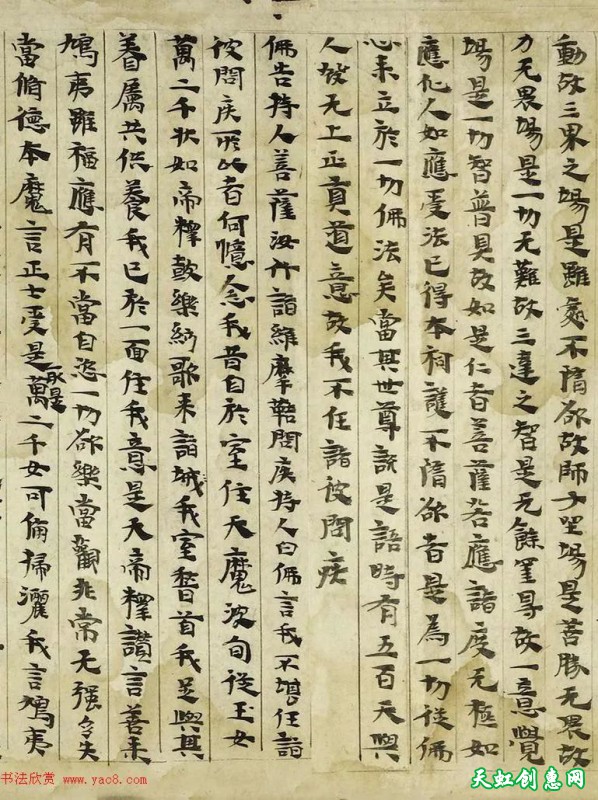 動故三界之場是雖處不隋欲故師子坐場是苦勝无畏故
力无畏場是一切无難故三達之智是无餘罣导故一意覺
場是一切智普具故如是仁者菩薩若應諸度无極如
應化人如應受法已得本祠護不隋欲者是為一切從佛
心来立於一切佛法矣當其世尊說是語時有五百天與
人發无上正真道意故我不任詣彼問疾
佛告持人菩薩汝行詣維摩詰問疾持人白佛言我不堪任詣
彼問疾所以者何憶念我昔自於室住天魔波旬從玉女
萬二千狀如帝釋鼓樂絃歌来詣城我室稽首我足與其
眷屬共供養我已於一面住我意是天帝釋讚言善来
鳩夷雖福應有不當自恣一切欲樂當觀非常无强多失
當脩德本魔言正士受是萬二千女可備掃灑我言鳩夷
取是
书法欣赏 www.yac8.com
天虹创惠网